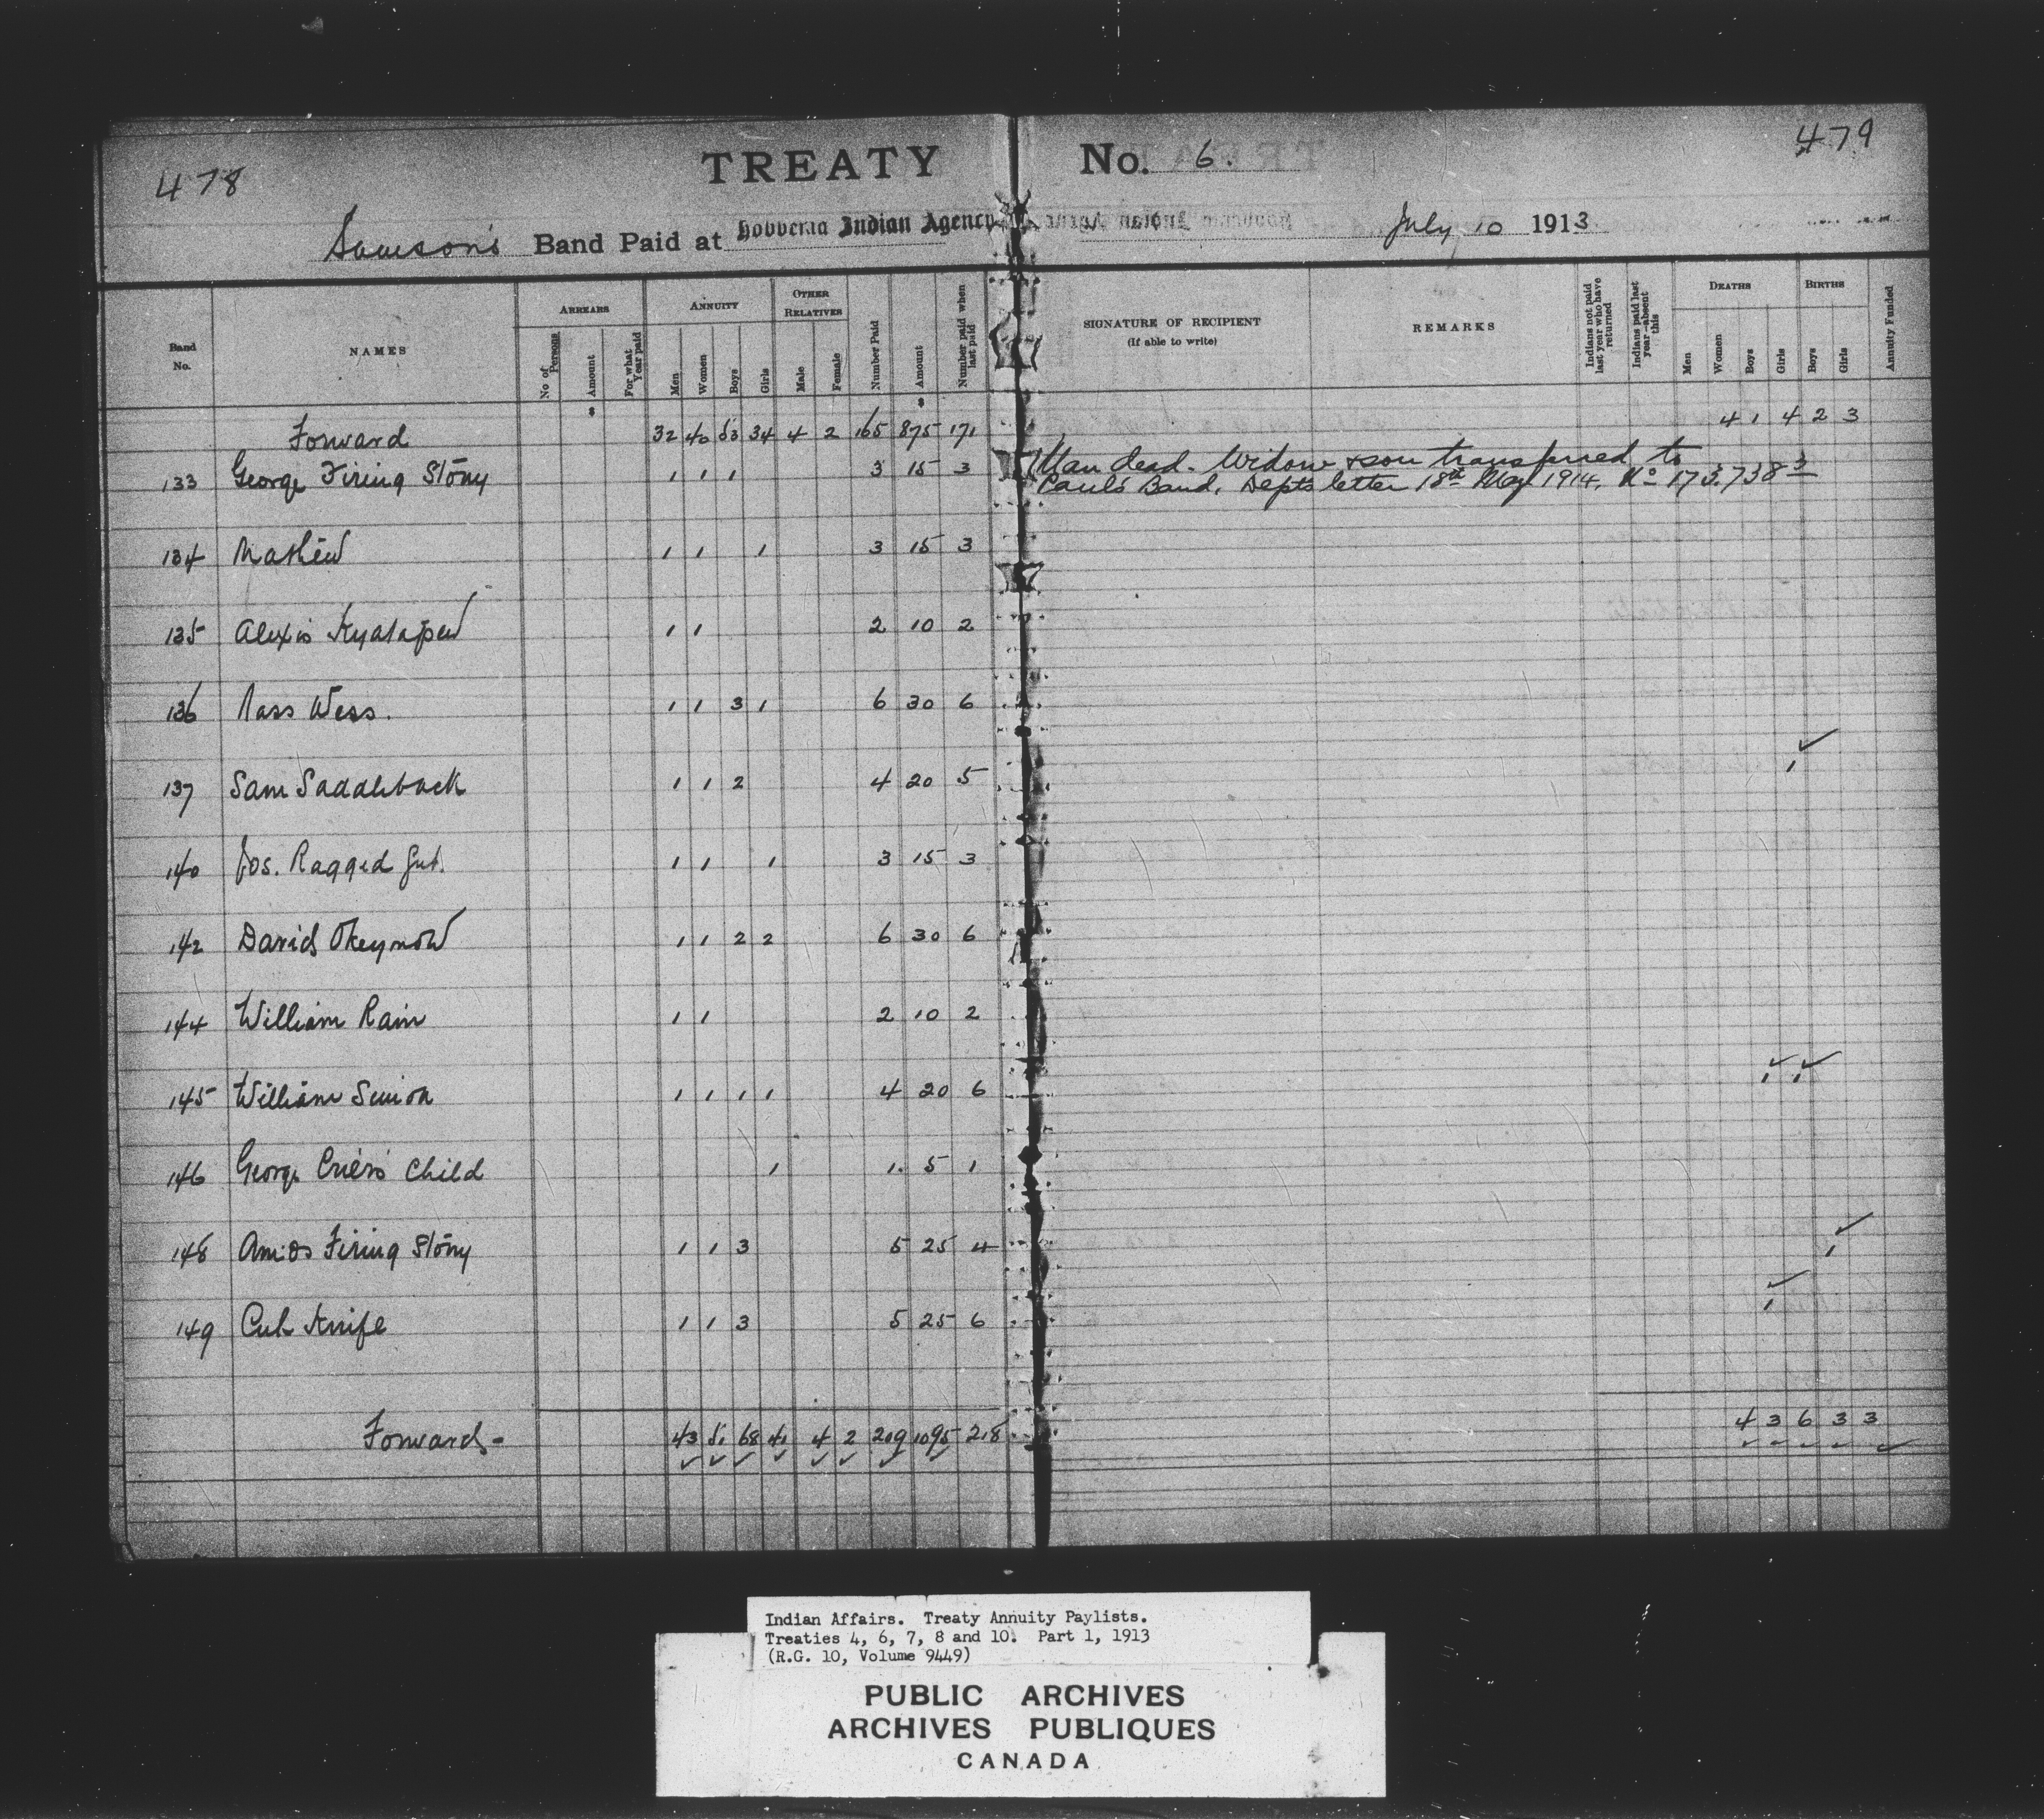 478
TREATY No. 6.
479
Samson's Band Paid at Hobbema Indian Agency July 10 1913
Band No. NAMES ARREARS No of Persons Amount For what Year paid ANNUITY Men Women Boys Girls OTHER RELATIVES Male Female Number Paid Amount Number paid when last paid SIGNATURE OF RECIPIENT (If able to write) REMARKS Indians not paid last year who have returned Indians paid last year—absent this DEATHS Men Women Boys Girls BIRTHS Boys Girls Annuity Funded
$ $
Forward 32 40 53 34 4 2 165 875 171 4 1 4 2 3
133 George Firing Stony 1 1 1 3 15 3 Man dead. Widow & son transferred to
Paul's Band. Depts letter 18th May 1914. No 173.738 3
134 Mathew 1 1 1 3 15 3
135 Alexis 1 1 2 10 2
136 Ross Wess. 1 1 3 1 6 30 6
137 Sam Saddleback 1 1 2 4 20 5 1
140 Jos. Ragged Gut. 1 1 1 3 15 3
142 David Okeymow 1 1 2 2 6 30 6
144 William Rain 1 1 2 10 2
145 William 1 1 1 1 4 20 6 1 1
146 George Crier's Child 1 1. 5 1
148 Amos Firing Stony 1 1 3 5 25 4 1
149 Cut Knife 1 1 3 5 25 6 1
Forward - 43 51 68 41 4 2 209 1095 218 4 3 6 3 3
Indian Affairs. Treaty Annuity Paylists.
Treaties 4, 6, 7, 8 and 10. Part 1, 1913
(R.G. 10, Volume 9449)
PUBLIC ARCHIVES
ARCHIVES PUBLIQUES
CANADA